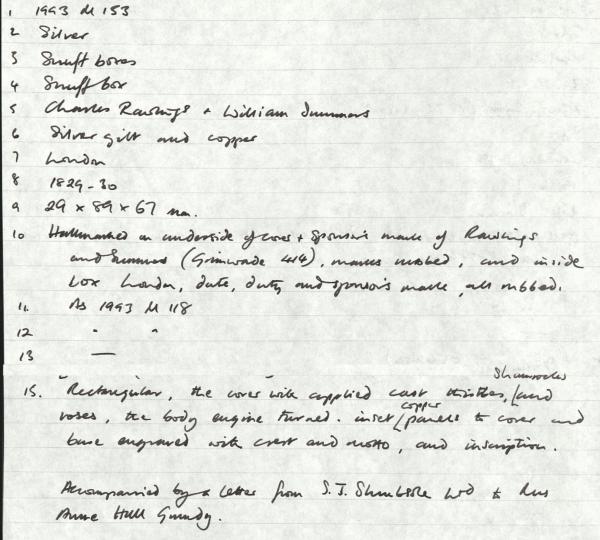 1 1993 M 153
2 Silver
3 Snuff boxes
4 Snuff box
5 Charles Rawlings + William Summers
6 Silver gilt and copper
7 London
8 1829-30
9 29 x 89 x 67 mm.
10 Hallmarked on underside of cover + sponsor's mark of Rawlings
and Summers (Grimwade 414), marks rubbed, and inside
box London, date, duty and sponsor's mark, all rubbed.
11. As 1993 M 118
12 " "
13 —
15. Rectangular, the cover with applied cast thistles, / shamrocks and
roses, the body engine turned. inset / copper panels to cover and
base engraved with crest and motto, and inscription.
Accompanied by a letter from S.J. Shrubsole Ltd to Mrs
Anne Hull Grundy.